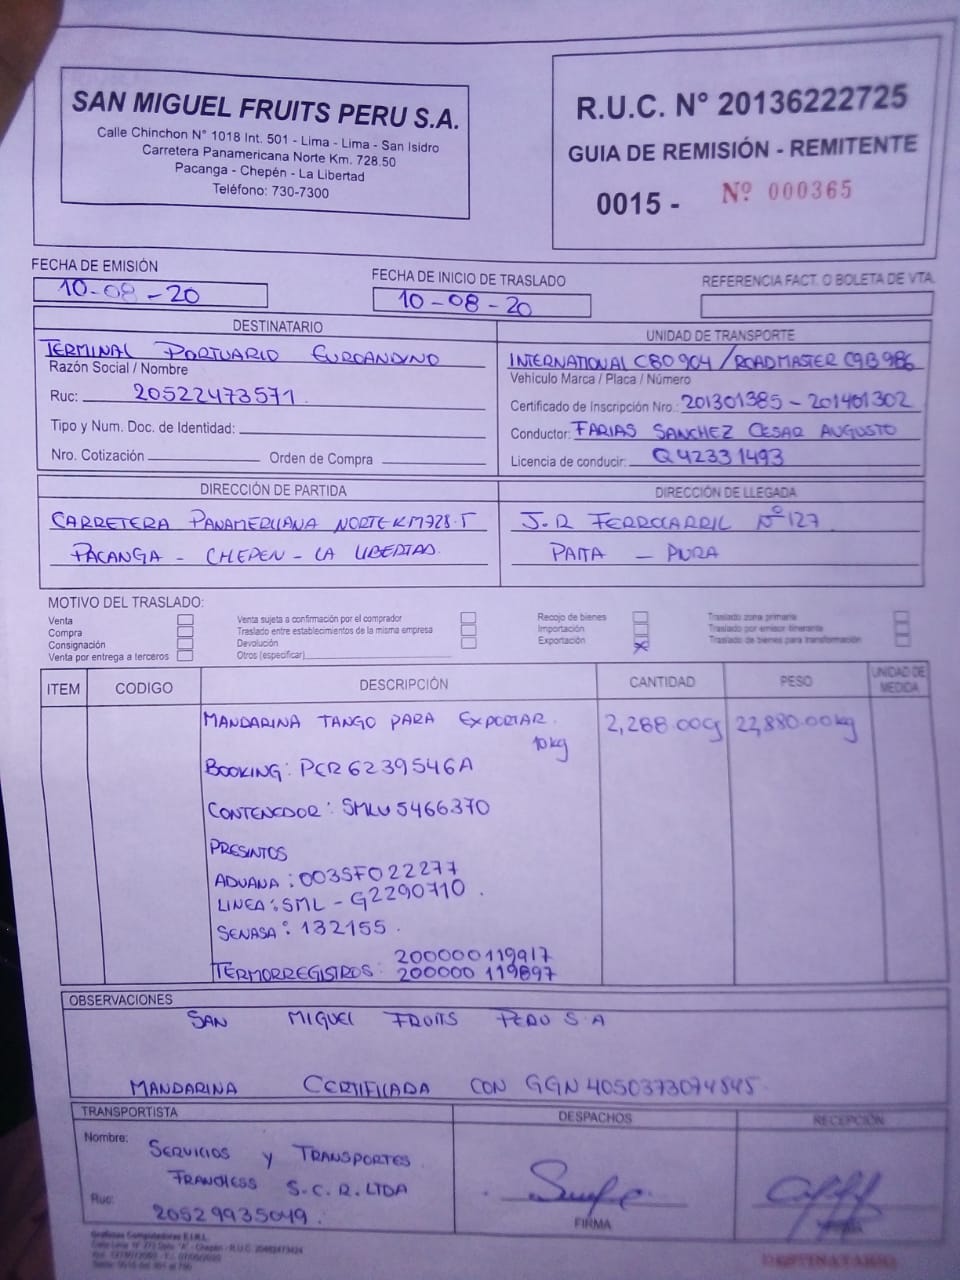 SAN MIGUEL FRUITS PERU S.A.
Calle Chinchon N° 1018 Int. 501 - Lima - Lima - San Isidro
Carretera Panamericana Norte Km. 728.50
Pacanga - Chepén - La Libertad
Teléfono: 730-7300
R.U.C. N° 20136222725
GUIA DE REMISIÓN - REMITENTE
0015 - Nº 000365
FECHA DE EMISIÓN
10-08-20
FECHA DE INICIO DE TRASLADO
10-08-20
REFERENCIA FACT. O BOLETA DE VTA.
DESTINATARIO
TERMINAL PORTUARIO EUROANDINO
Razón Social / Nombre
Ruc: 20522473571
Tipo y Num. Doc. de Identidad:
Nro. Cotización Orden de Compra
UNIDAD DE TRANSPORTE
INTERNATIONAL C80904 / ROADMASTER C9B986
Vehículo Marca / Placa / Número
Certificado de Inscripción Nro.: 201301385 - 201401302
Conductor: FARIAS SANCHEZ CESAR AUGUSTO
Licencia de conducir: Q42331493
DIRECCIÓN DE PARTIDA
CARRETERA PANAMERICANA NORTE KM728.5
PACANGA - CHEPEN - LA LIBERTAD.
DIRECCIÓN DE LLEGADA
J.R FERROCARRIL Nº127
PAITA - PIURA
MOTIVO DEL TRASLADO:
Venta
Compra
Consignación
Venta por entrega a terceros
Venta sujeta a confirmación por el comprador
Traslado entre establecimientos de la misma empresa
Devolución
Otros (especificar)
Recojo de bienes
Importación
Exportación X
Traslado zona primaria
Traslado por emisor itinerante
Traslado de bienes para transformación
ITEM CODIGO DESCRIPCIÓN CANTIDAD PESO UNIDAD DE MEDIDA
MANDARINA TANGO PARA EXPORTAR. 2,288.00 22,880.00kg
10kg
BOOKING: PCR6239546A
CONTENEDOR: SMLU5466370
PRESINTOS
ADUANA: 003SF022277
LINEA: SML - G2290710.
SENASA: 132155.
TERMORREGISTROS: 200000119917
200000119897
OBSERVACIONES
SAN MIGUEL FRUITS PERU S.A
MANDARINA CERTIFICADA CON GGN 4050373074845
TRANSPORTISTA
Nombre: SERVICIOS Y TRANSPORTES
FRANCHESS S.C.R.LTDA
Ruc: 20529935049.
DESPACHOS
FIRMA
RECEPCIÓN
FIRMA
Gráficas Computadoras E.I.R.L.
DESTINATARIO